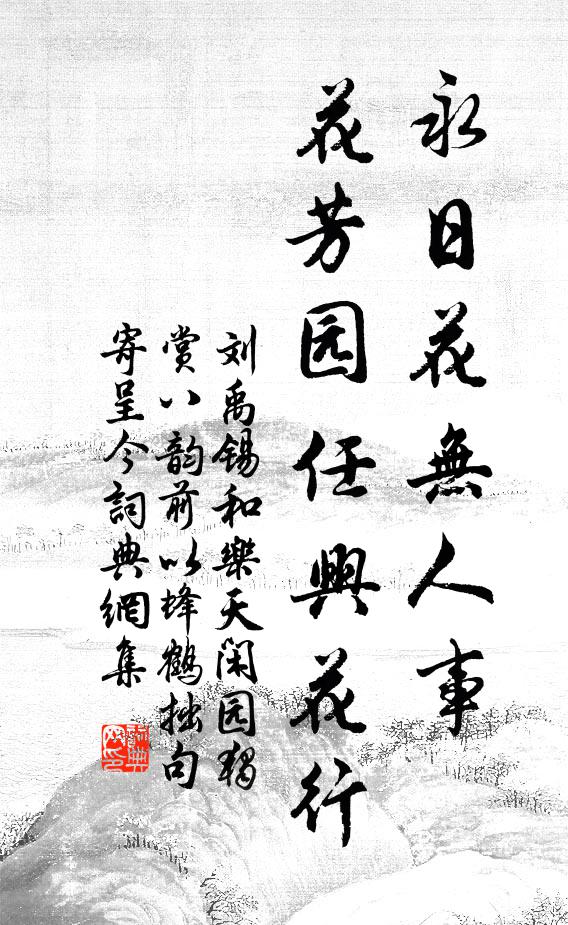 永日花無人事
花芳园任興花行
刘禹锡和樂天闲园独
赏八韵前以蜂鶴拙句
寄呈今詞典網集